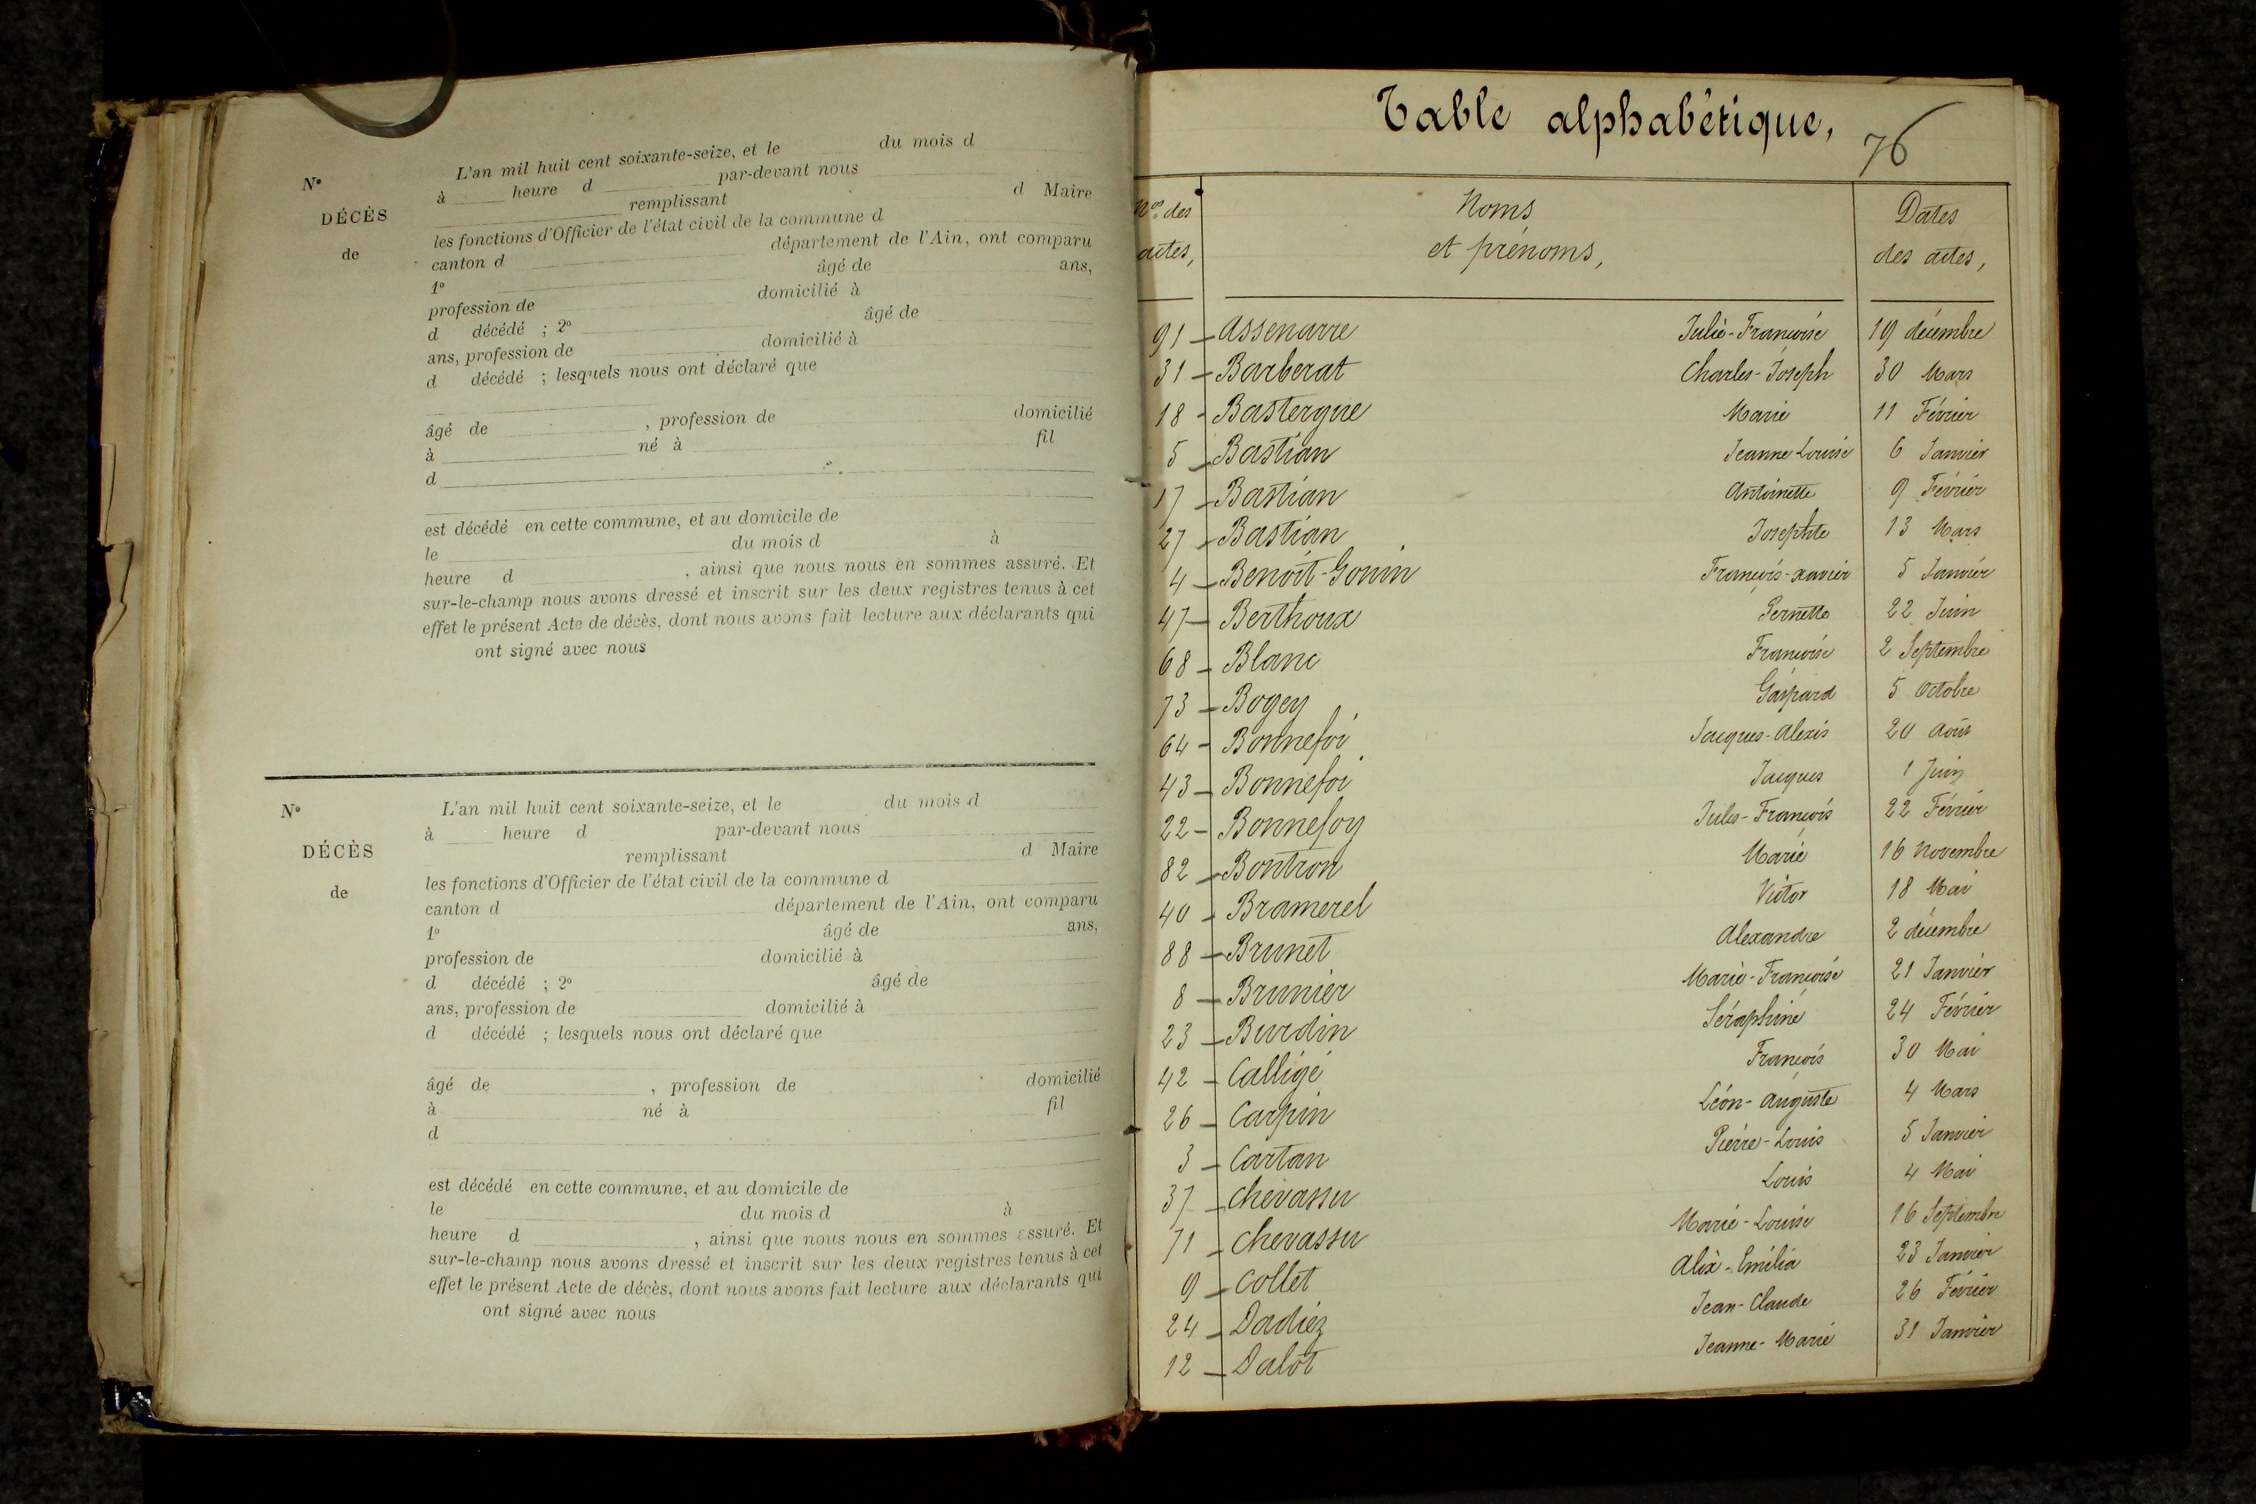 L'an mil huit cent soixante-seize, et le du mois d
N°
à heure d par-devant nous
DÉCÈS
remplissant d Maire
de
les fonctions d'Officier de l'état civil de la commune d
canton d département de l'Ain, ont comparu
1° âgé de ans,
profession de domicilié à
d décédé ; 2° âgé de
ans, profession de domicilié à
d décédé ; lesquels nous ont déclaré que
âgé de , profession de domicilié
à né à fil
d
est décédé en cette commune, et au domicile de
le du mois d à
heure d , ainsi que nous nous en sommes assuré. Et
sur-le-champ nous avons dressé et inscrit sur les deux registres tenus à cet
effet le présent Acte de décès, dont nous avons fait lecture aux déclarants qui
ont signé avec nous
N° L'an mil huit cent soixante-seize, et le du mois d
à heure d par-devant nous
DÉCÈS remplissant d Maire
de les fonctions d'Officier de l'état civil de la commune d
canton d département de l'Ain, ont comparu
1° âgé de ans,
profession de domicilié à
d décédé ; 2° âgé de
ans, profession de domicilié à
d décédé ; lesquels nous ont déclaré que
âgé de , profession de domicilié
à né à fil
d
est décédé en cette commune, et au domicile de
le du mois d à
heure d , ainsi que nous nous en sommes assuré. Et
sur-le-champ nous avons dressé et inscrit sur les deux registres tenus à cet
effet le présent Acte de décès, dont nous avons fait lecture aux déclarants qui
ont signé avec nous
Table alphabétique,
76
Nos des actes, Noms et prénoms, Dates des actes,
91 - Assenarre Julie-Françoise 19 décembre
31 - Barberat Charles-Joseph 30 Mars
18 - Bastergue Marie 11 Février
5 - Bastian Jeanne Louise 6 Janvier
17 - Bastian Antoinette 9 Février
27 - Bastian Josephte 13 Mars
4 - Benoît-Gonin François-xavier 5 Janvier
47 - Berthoux Pernette 22 Juin
68 - Blanc Françoise 2 Septembre
73 - Bogey Gaspard 5 Octobre
64 - Bonnefoi Jacques-Alexis 20 Août
43 - Bonnefoi Jacques 1 Juin
22 - Bonnefoy Jules-François 22 Février
82 - Bontron Marie 16 Novembre
40 - Bramerel Victor 18 Mai
88 - Brunet Alexandre 2 décembre
8 - Brunier Marie-Françoise 21 Janvier
23 - Burdin Séraphine 24 Février
42 - Calligé François 30 Mai
26 - Carpin Léon-Auguste 4 Mars
3 - Cartan Pierre-Louis 5 Janvier
37 - Chevassu Louis 4 Mai
71 - Chevassu Marie-Louise 16 Septembre
9 - Collet Alix-Emilia 23 Janvier
24 - Dadiez Jean-Claude 26 Février
12 - Dalot Jeanne-Marie 31 Janvier